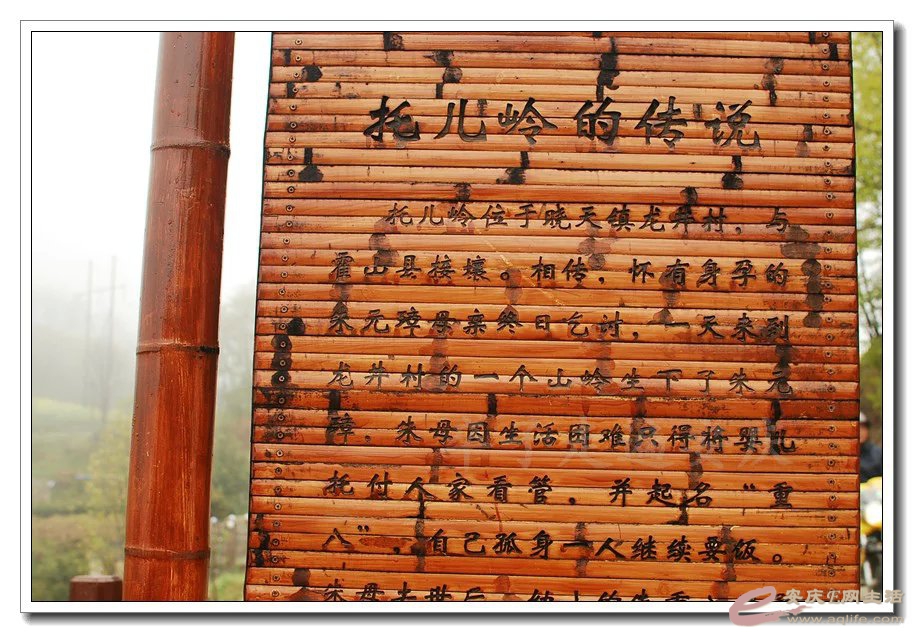 托儿岭的传说
托儿岭位于晓天镇龙井村，与
霍山县接壤。相传，怀有身孕的
朱元璋母亲终日乞讨，一天来到
龙井村的一个山岭生下了朱元
璋，朱母因生活困难只得将婴儿
托付人家看管，并起名“重
八”，自己孤身一人继续要饭。
朱母去世后，
安庆E网生活
www.aqlife.com